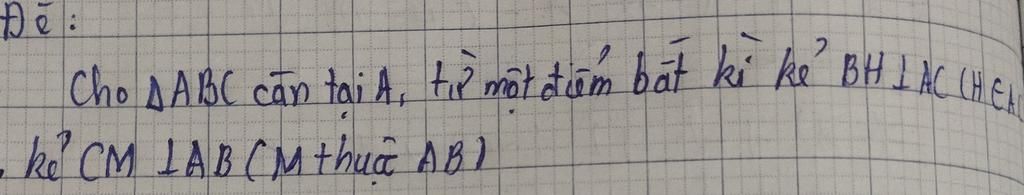 Đề:
Cho ΔABC cân tại A, từ một điểm bất kì kẻ BH⊥AC (H∈AC
kẻ CM ⊥AB (M thuộc AB)